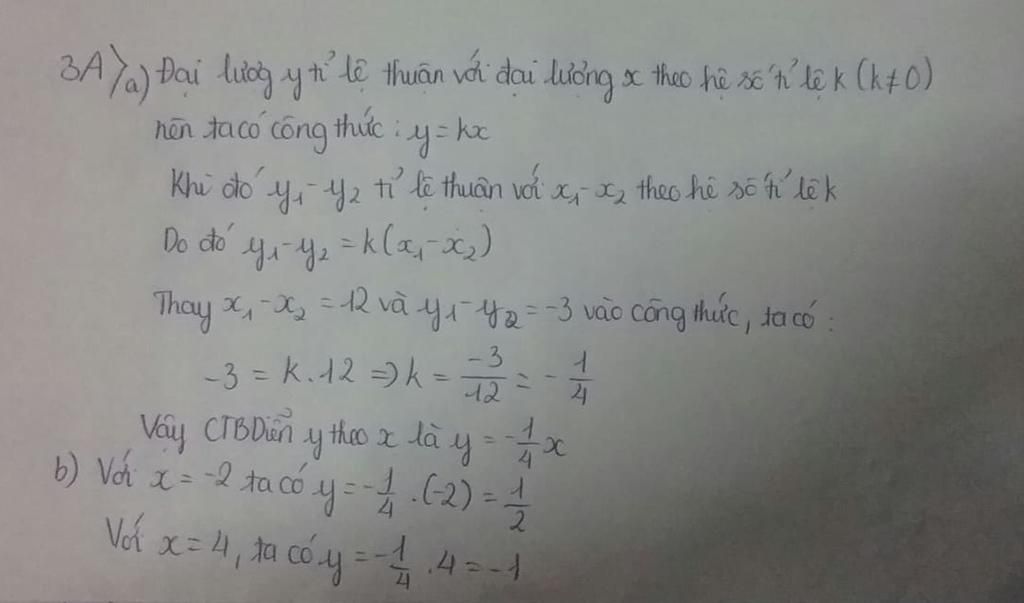 3A) a) Đại lượg y tỉ lệ thuận với đại lượng x theo hệ số tỉ lệ k (k≠0)
nên ta có công thức : y = kx
Khi đó y₁ - y₂ tỉ lệ thuận với x₁ - x₂ theo hệ số tỉ lệ k
Do đó y₁ - y₂ = k(x₁ - x₂)
Thay x₁ - x₂ = 12 và y₁ - y₂ = -3 vào công thức, ta có :
-3 = k.12 ⇒ k = -3/12 = -1/4
Vậy CTBDiễn y theo x là y = -1/4 x
b) Với x = -2 ta có y = -1/4 .(-2) = 1/2
Với x = 4, ta có y = -1/4 .4 = -1